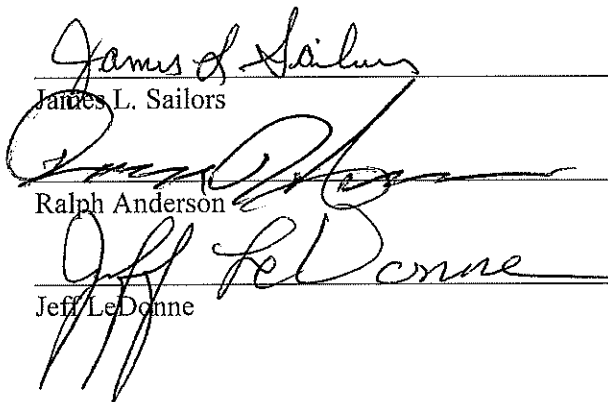 James L Sailors
James L. Sailors
Ralph Anderson
Jeff LeDonne
Jeff LeDonne